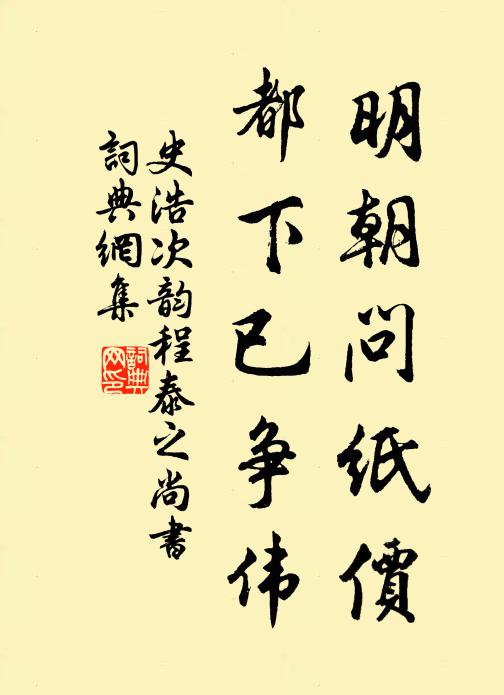 明朝問紙價
都下已争伟
史浩次韵程泰之尚書
詞典網集
詞典网印